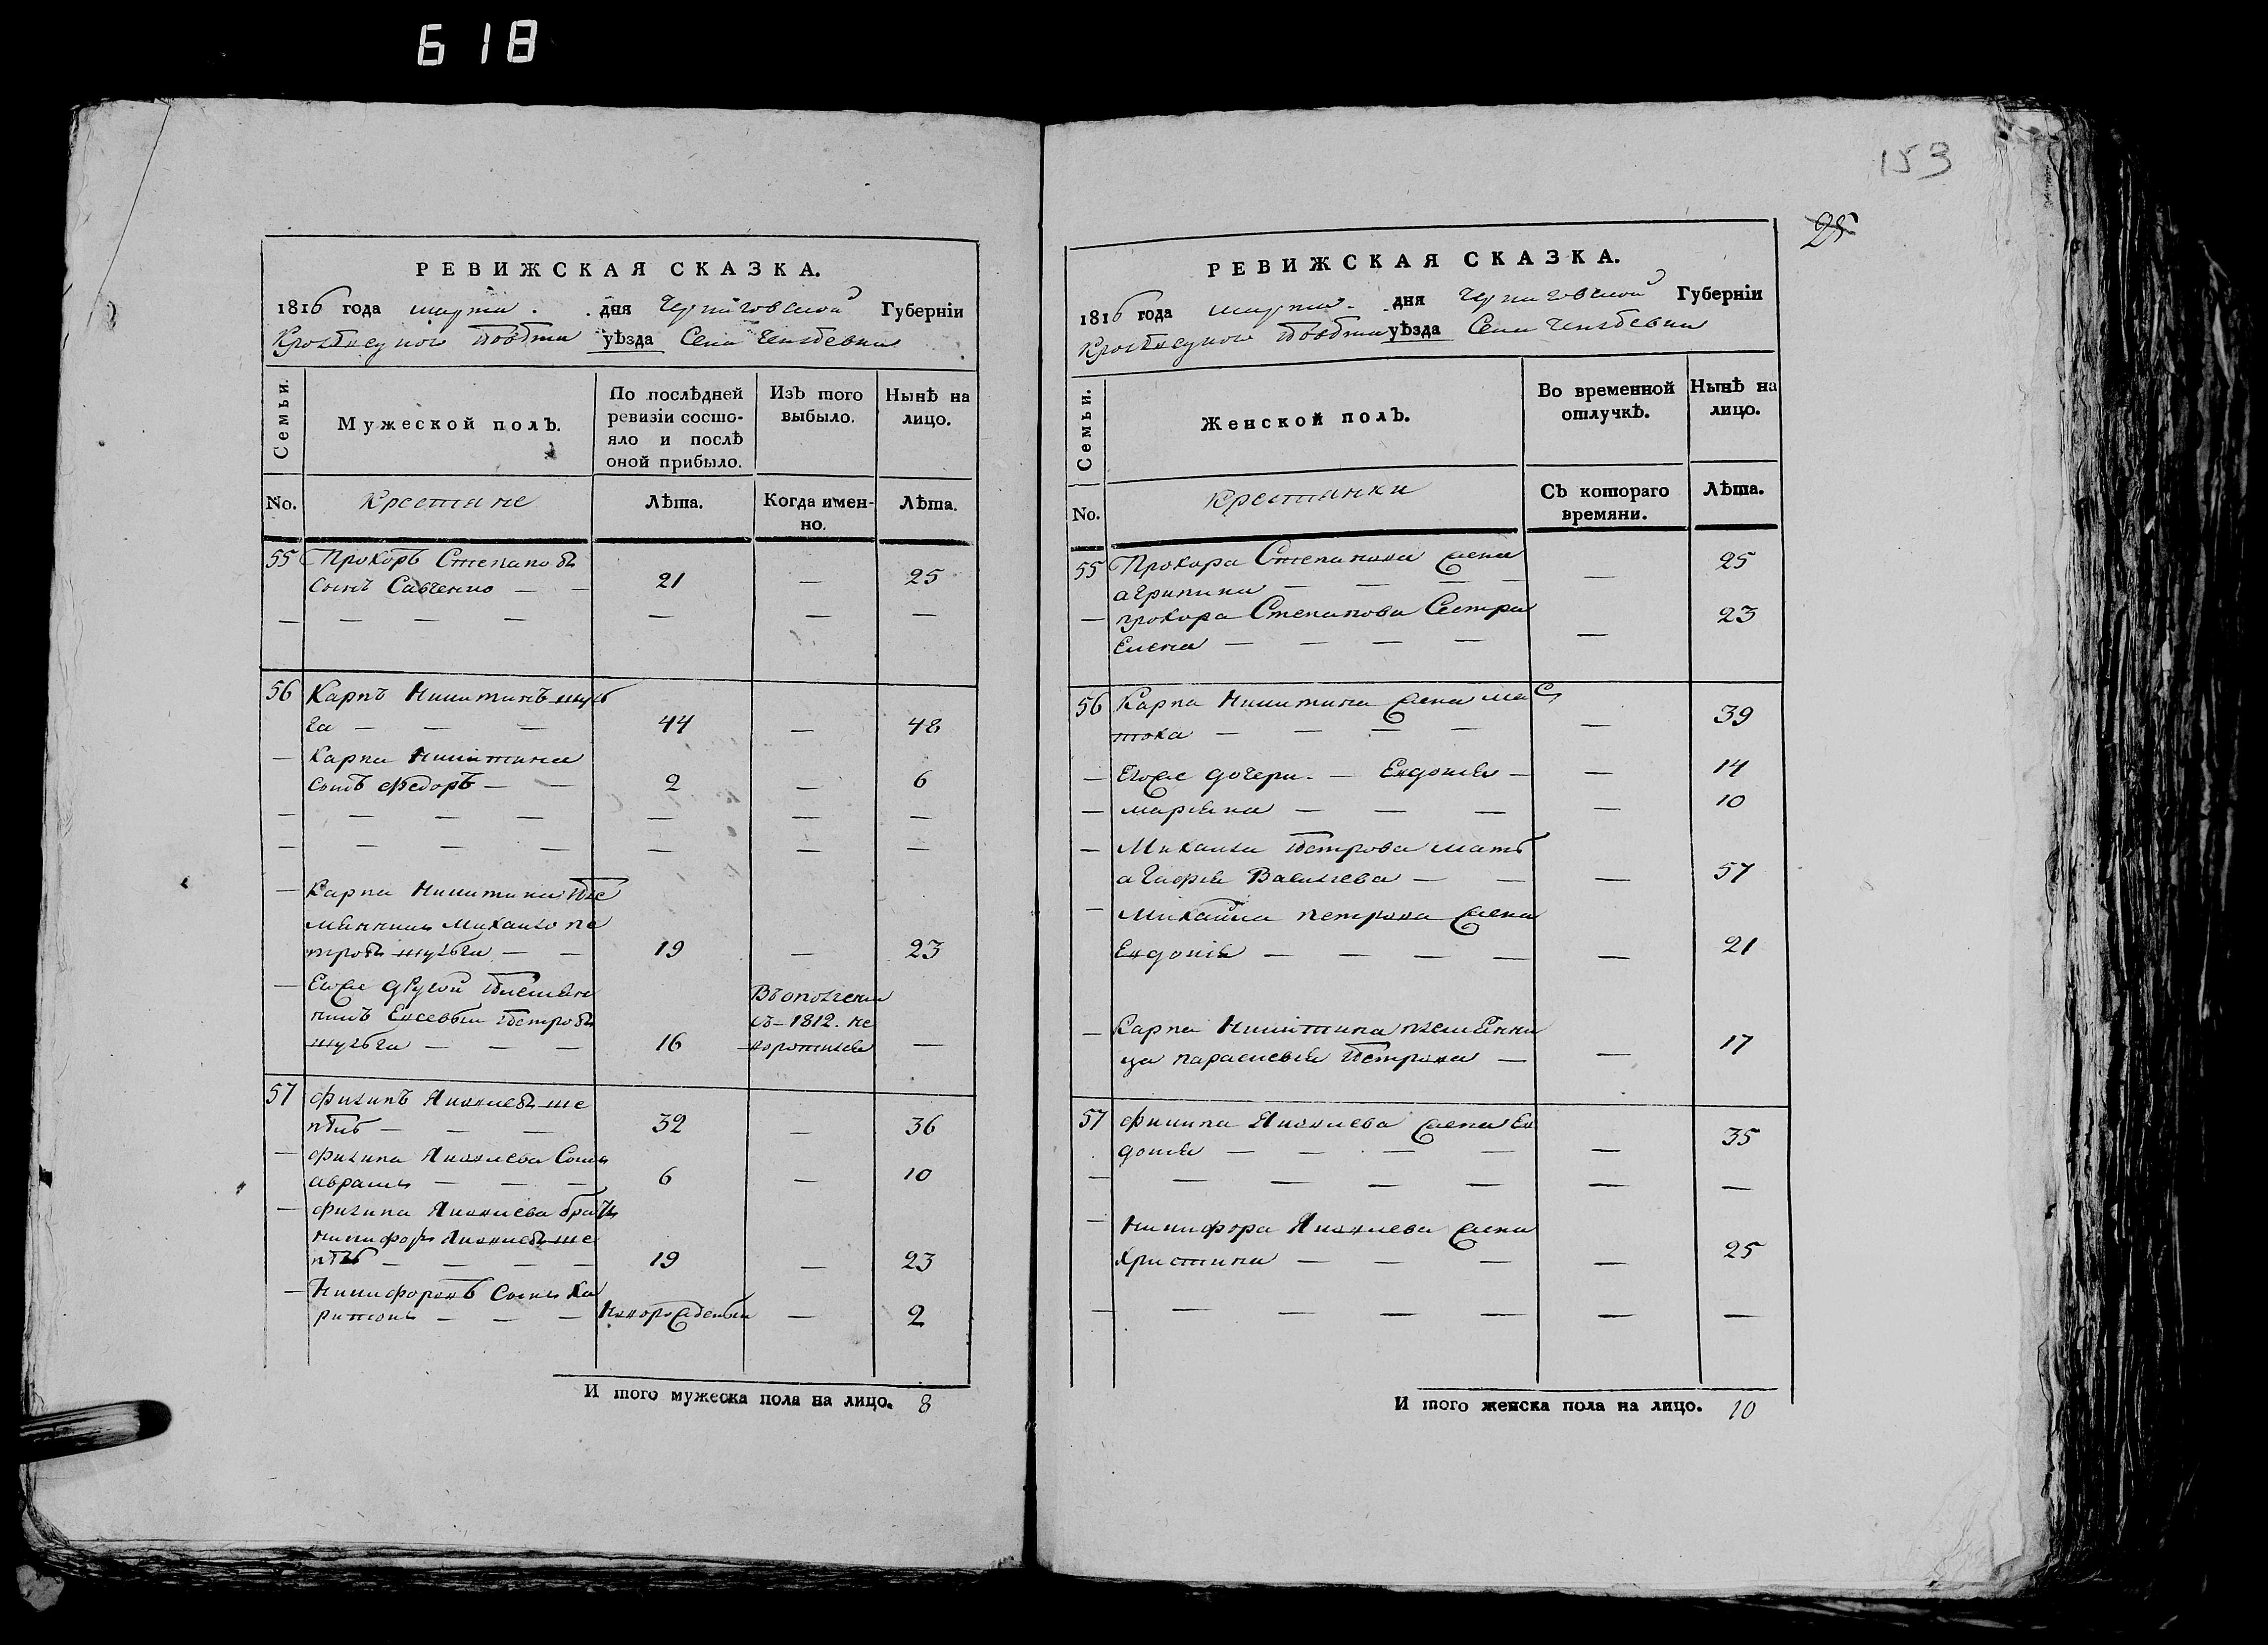 618
153
25
РЕВИЖСКАЯ СКАЗКА.
1816 года марта . . дня Черниговской Губерніи
повѣта уѣзда Села
Семьи.
Мужеской полъ.
По послѣдней ревизіи состояло и послѣ оной прибыло.
Изъ того выбыло.
Нынѣ на лицо.
No.
Крестяне
Лѣта.
Когда именно.
Лѣта.
55 Прокоръ Степановъ
сынъ Савченко — — 21 — 25
— — — — — — —
56 Карпъ Никитинъ шуль
га — — — 44 — 48
— Карпа Никитина
сынъ Федоръ — — 2 — 6
— — — — — — — —
— — — — — — — —
— Карпа Никитина пле
мянникъ Михайло пе
тровъ шульга — — 19 — 23
— Егоже другой племян
никъ Евсевый Петровъ Въ ополчении
шульга — — — 16 съ 1812. не —
воротился
57 Филипъ Яковлевъ ше
— — — 32 — 36
— филипа Яковлева сынъ
аврамъ — — — 6 — 10
— филипа Яковлева братъ
никифоръ Яковлевъ ше
— — — — 19 — 23
— Никифоровъ сынъ Ха
ритонъ — — — Новорожденный — 2
И того мужеска пола на лицо. 8
РЕВИЖСКАЯ СКАЗКА.
1816 года марта . дня Черниговской Губерніи
повѣта уѣзда Села
Семьи.
Женской полъ.
Во временной отлучкѣ.
Нынѣ на лицо.
No.
Крестянки
Съ котораго времяни.
Лѣта.
55 Прокора Степанова жена — 25
агрипина — — — —
— прокора Степанова Сестра 23
Елена — — — — —
56 Карпа Никитина жена — 39
— — — —
— Егоже дочери. — Евдокия — — 14
— марьяна — — — — 10
— Михаила Петрова мать
агафия Васильева — — — 57
— Михайла петрова жена
Евдокія — — — — — 21
— Карпа Никитина племянни
ца параскевия Петрова — — 17
57 филипа Яковлева жена Ев
докия — — — — — 35
— — — — — — —
— Никифора Яковлева жена
христина — — — — 25
— — — — — — —
И того женска пола на лицо. 10